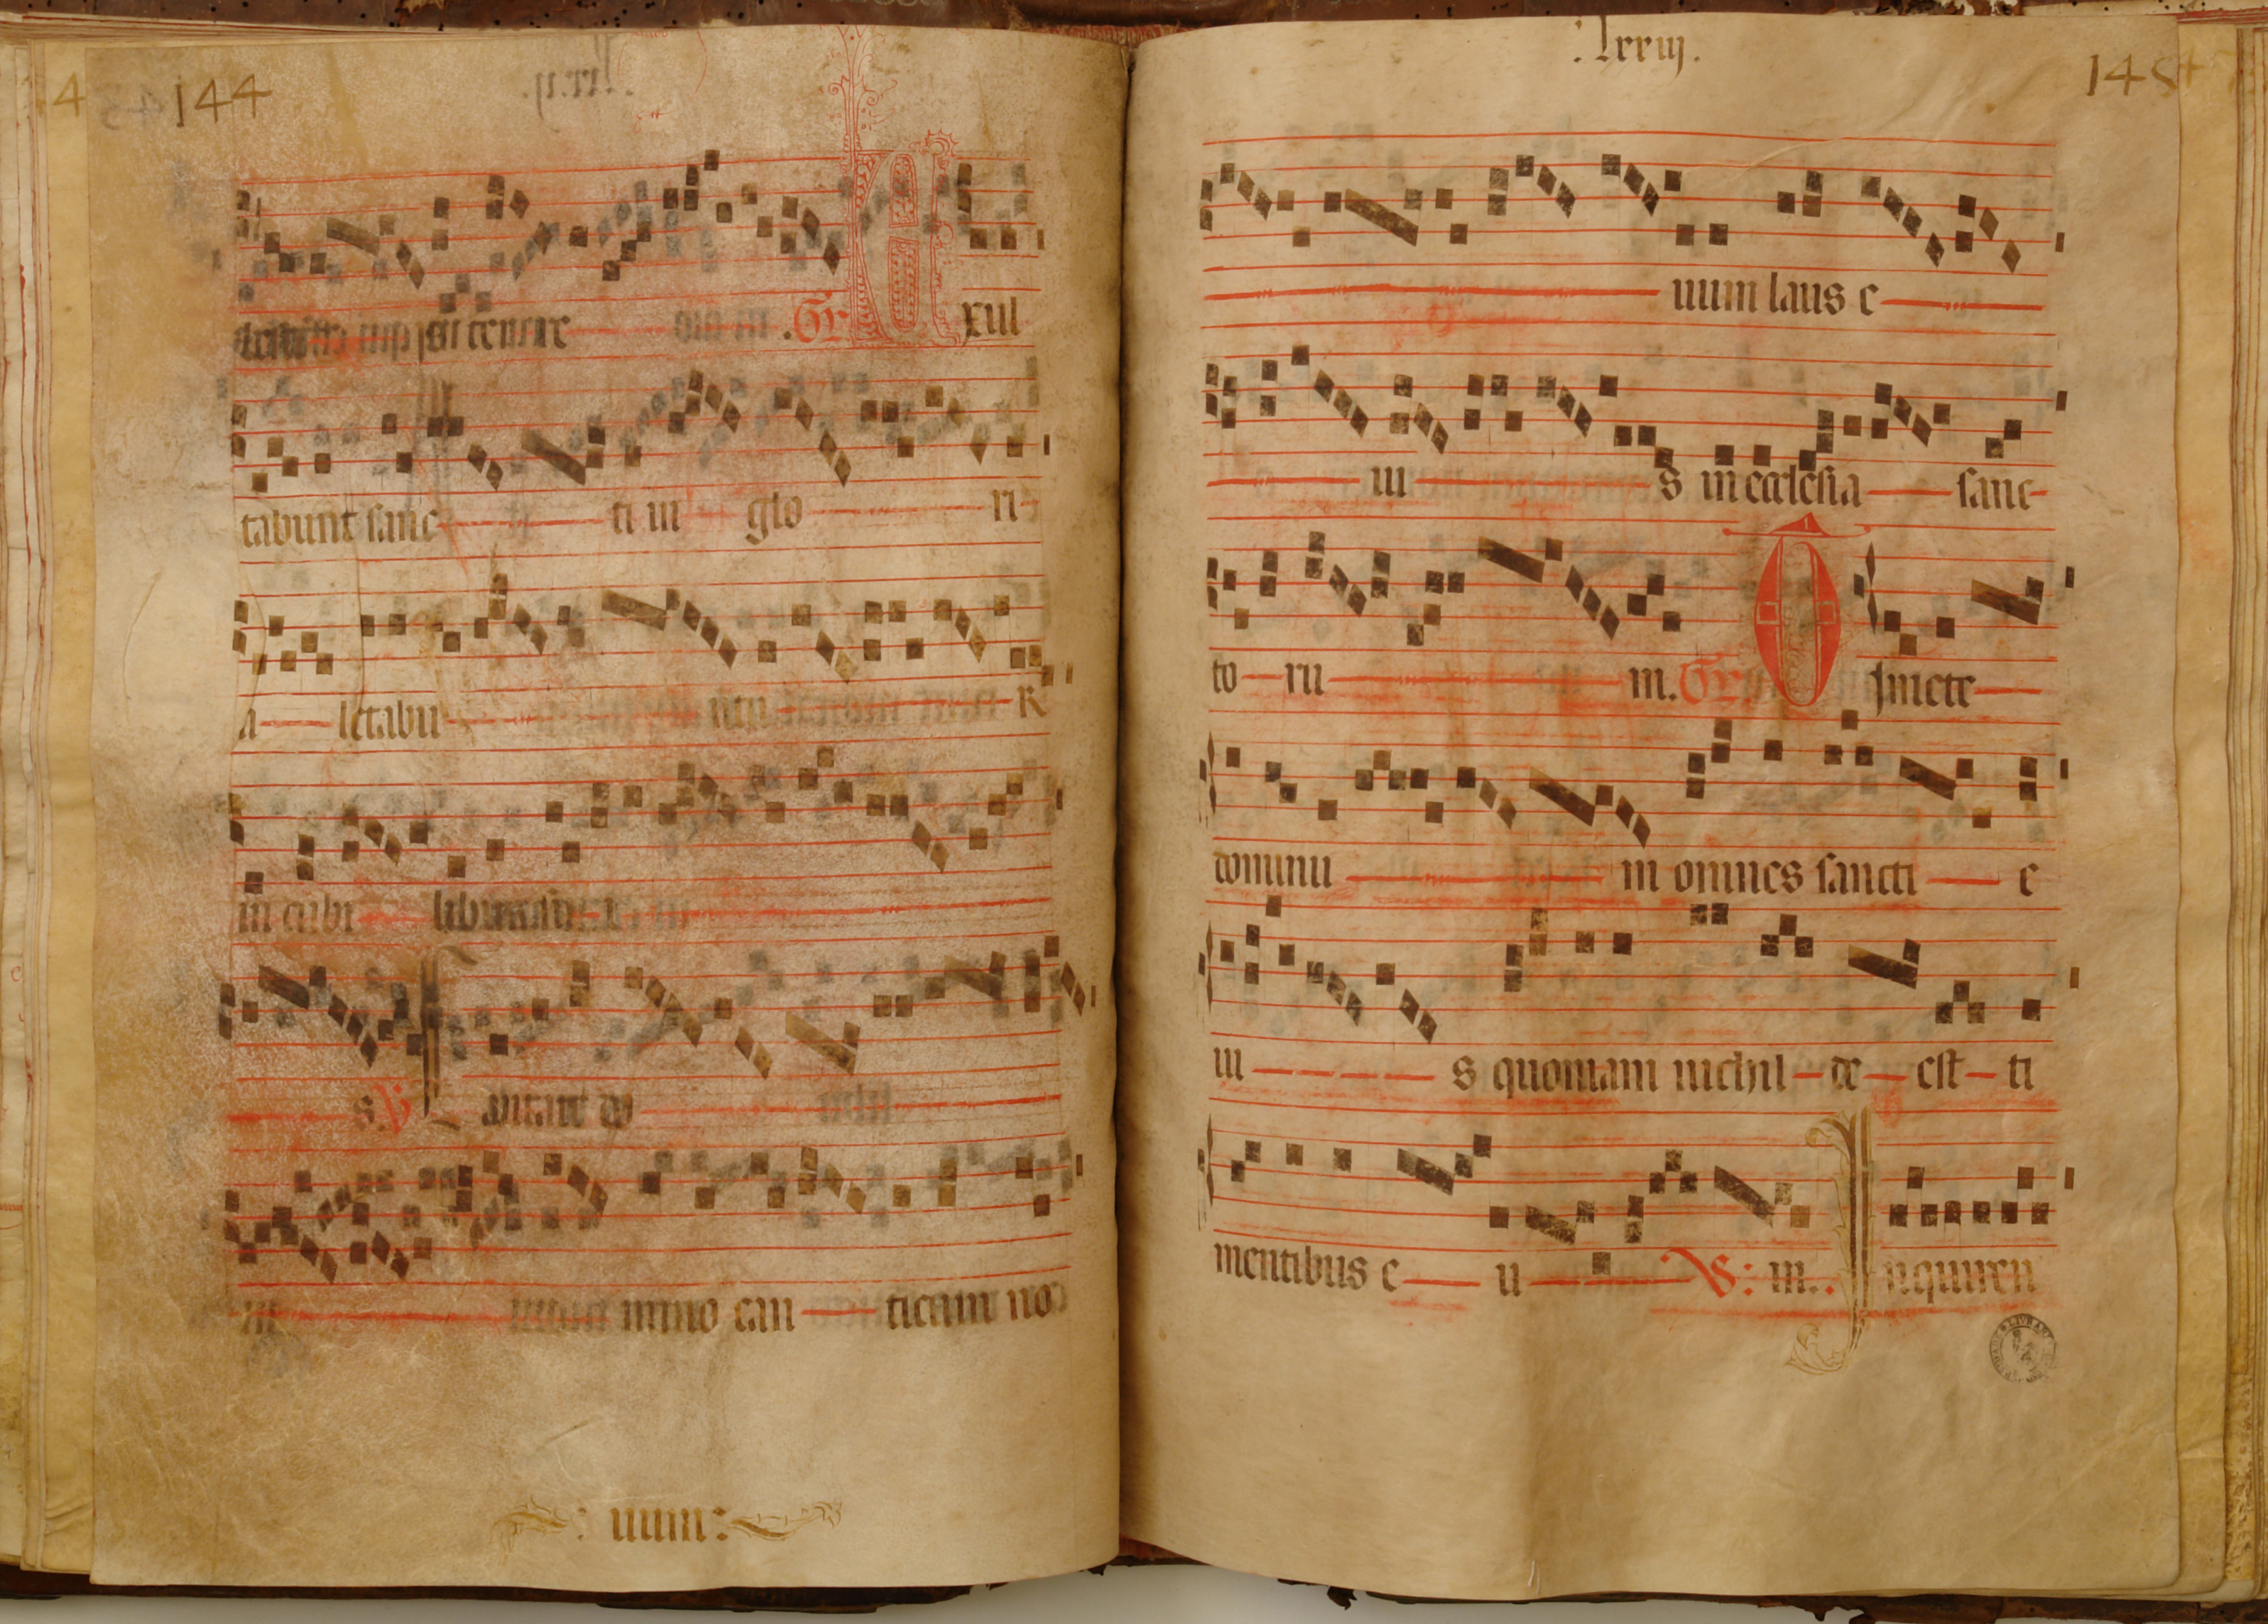 144
si tenere Gr Exul
tabunt sanc ti in glo ri
a letabu
in cubi libus
s. V Cantate do
mino can ticum no
:num:
:lxxiij.
145
uum laus e
iu s in ecclesia sanc
to ru m. Gr Timete
dominu m omnes sancti e
iu s quoniam nichil de est ti
mentibus e u V: m. Inquiren